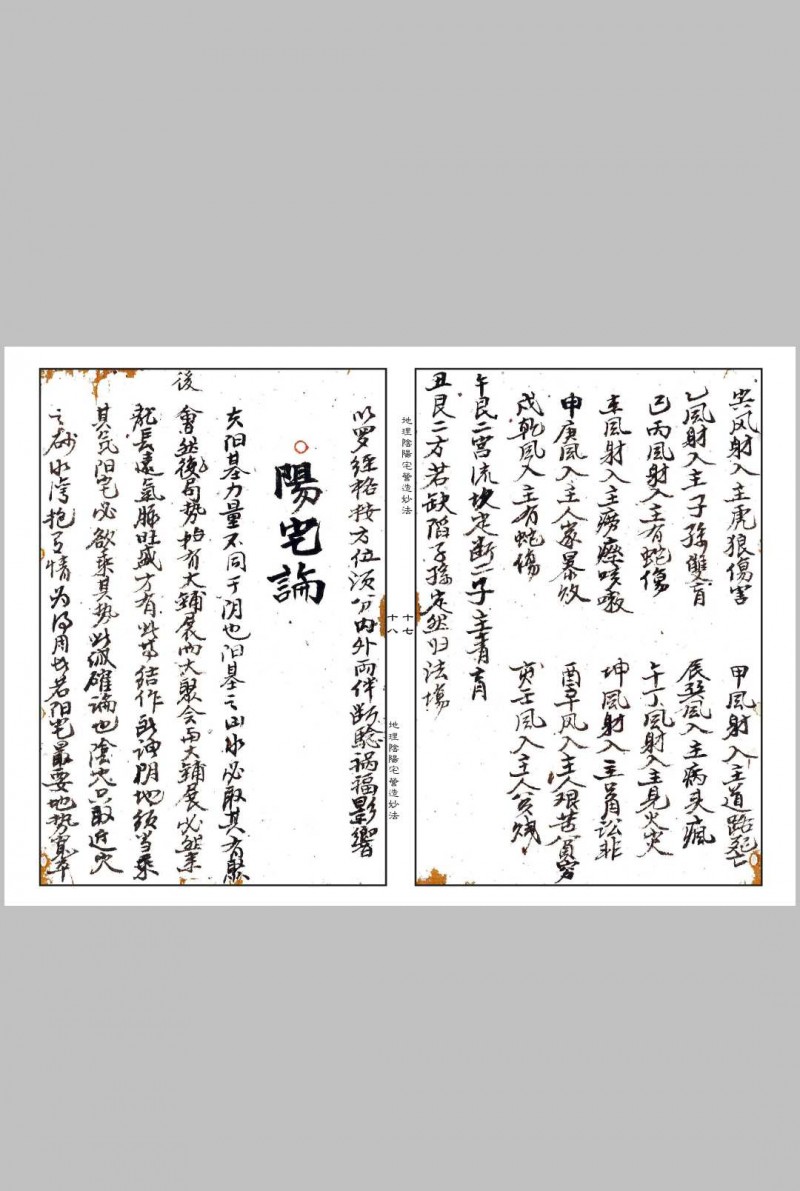 风射入主虎狼傷害 甲風射入主道路死亡
乙風射入主子孫雙盲 辰巽風入主病头瘋
巳丙風射入主有蛇傷 午丁風射入主見火灾
風射入主痨瘵咳嗽 坤風射入主口訟非
申庚風入主人家暴敗 酉辛风入主人艰苦貧穷
戍乾風入主有蛇傷 亥壬風入主人贫贱
午艮二宮流坎定断二子主青盲
丑艮二方若缺陷子孫定然归法場
地理陰陽宅營造妙法
十七
十八
地理陰陽宅營造妙法
以罗经格按方位须分内外两件断驗祸福影響
陽宅論
夫阳基力量不同于阴也阳基之山水必取其方聚
會然後局势始有大鋪展而大聚会而大鋪展必然来
後
龍長遠氣脉旺盛方有此等结作所謂阴地须当乘
其気阳宅必欲乘其势此诚確論也陰宅只取近穴
之砂水湾抱有情为得用也若阳宅最要地势寬平